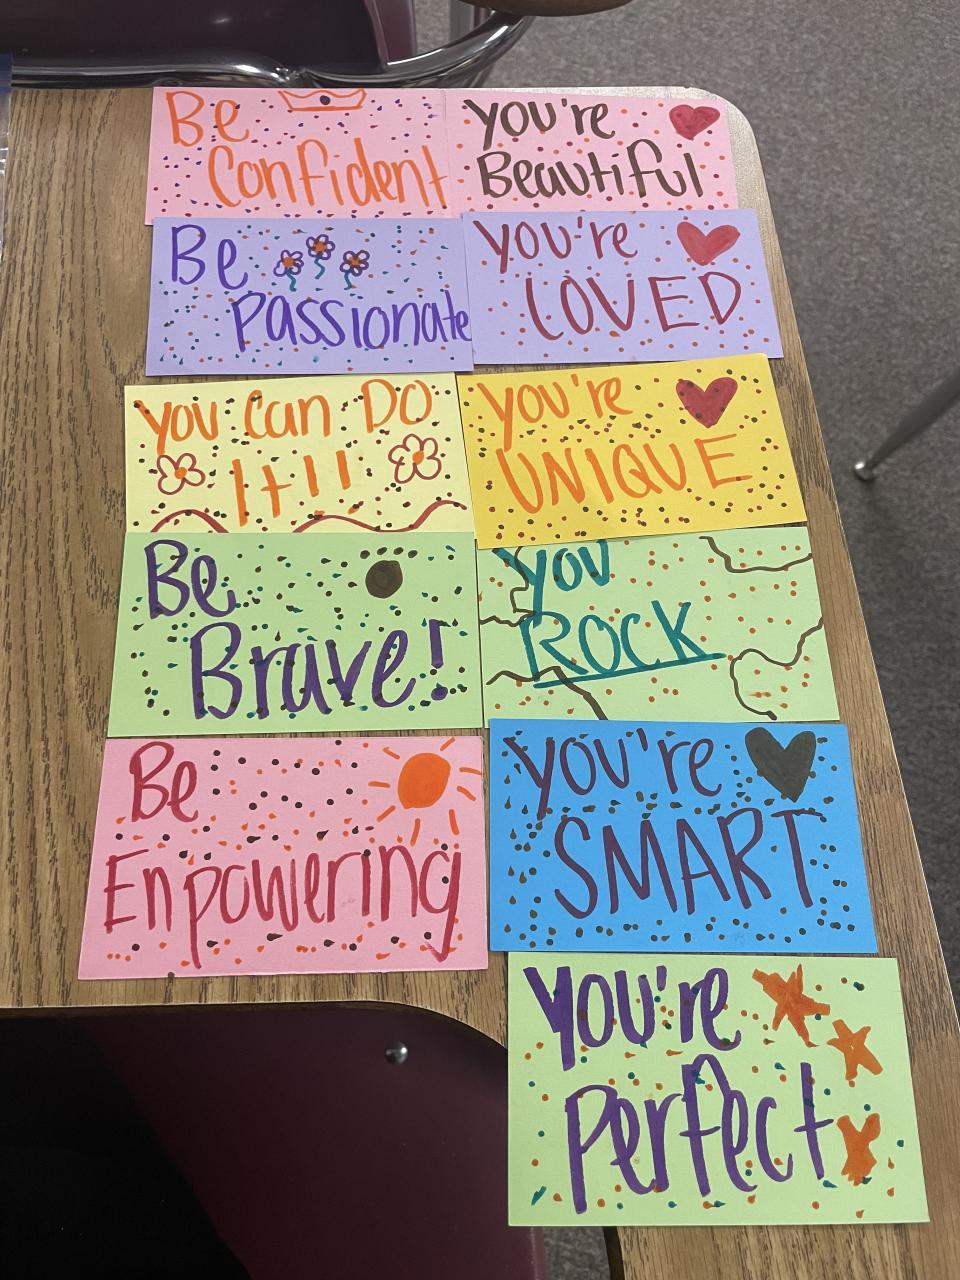 Be
Confident
You're
Beautiful
Be
Passionate
You're
LOVED
You Can Do
It!!
You're
UNIQUE
Be
Brave!
You
ROCK
Be
Enpowering
You're
SMART
You're
Perfect